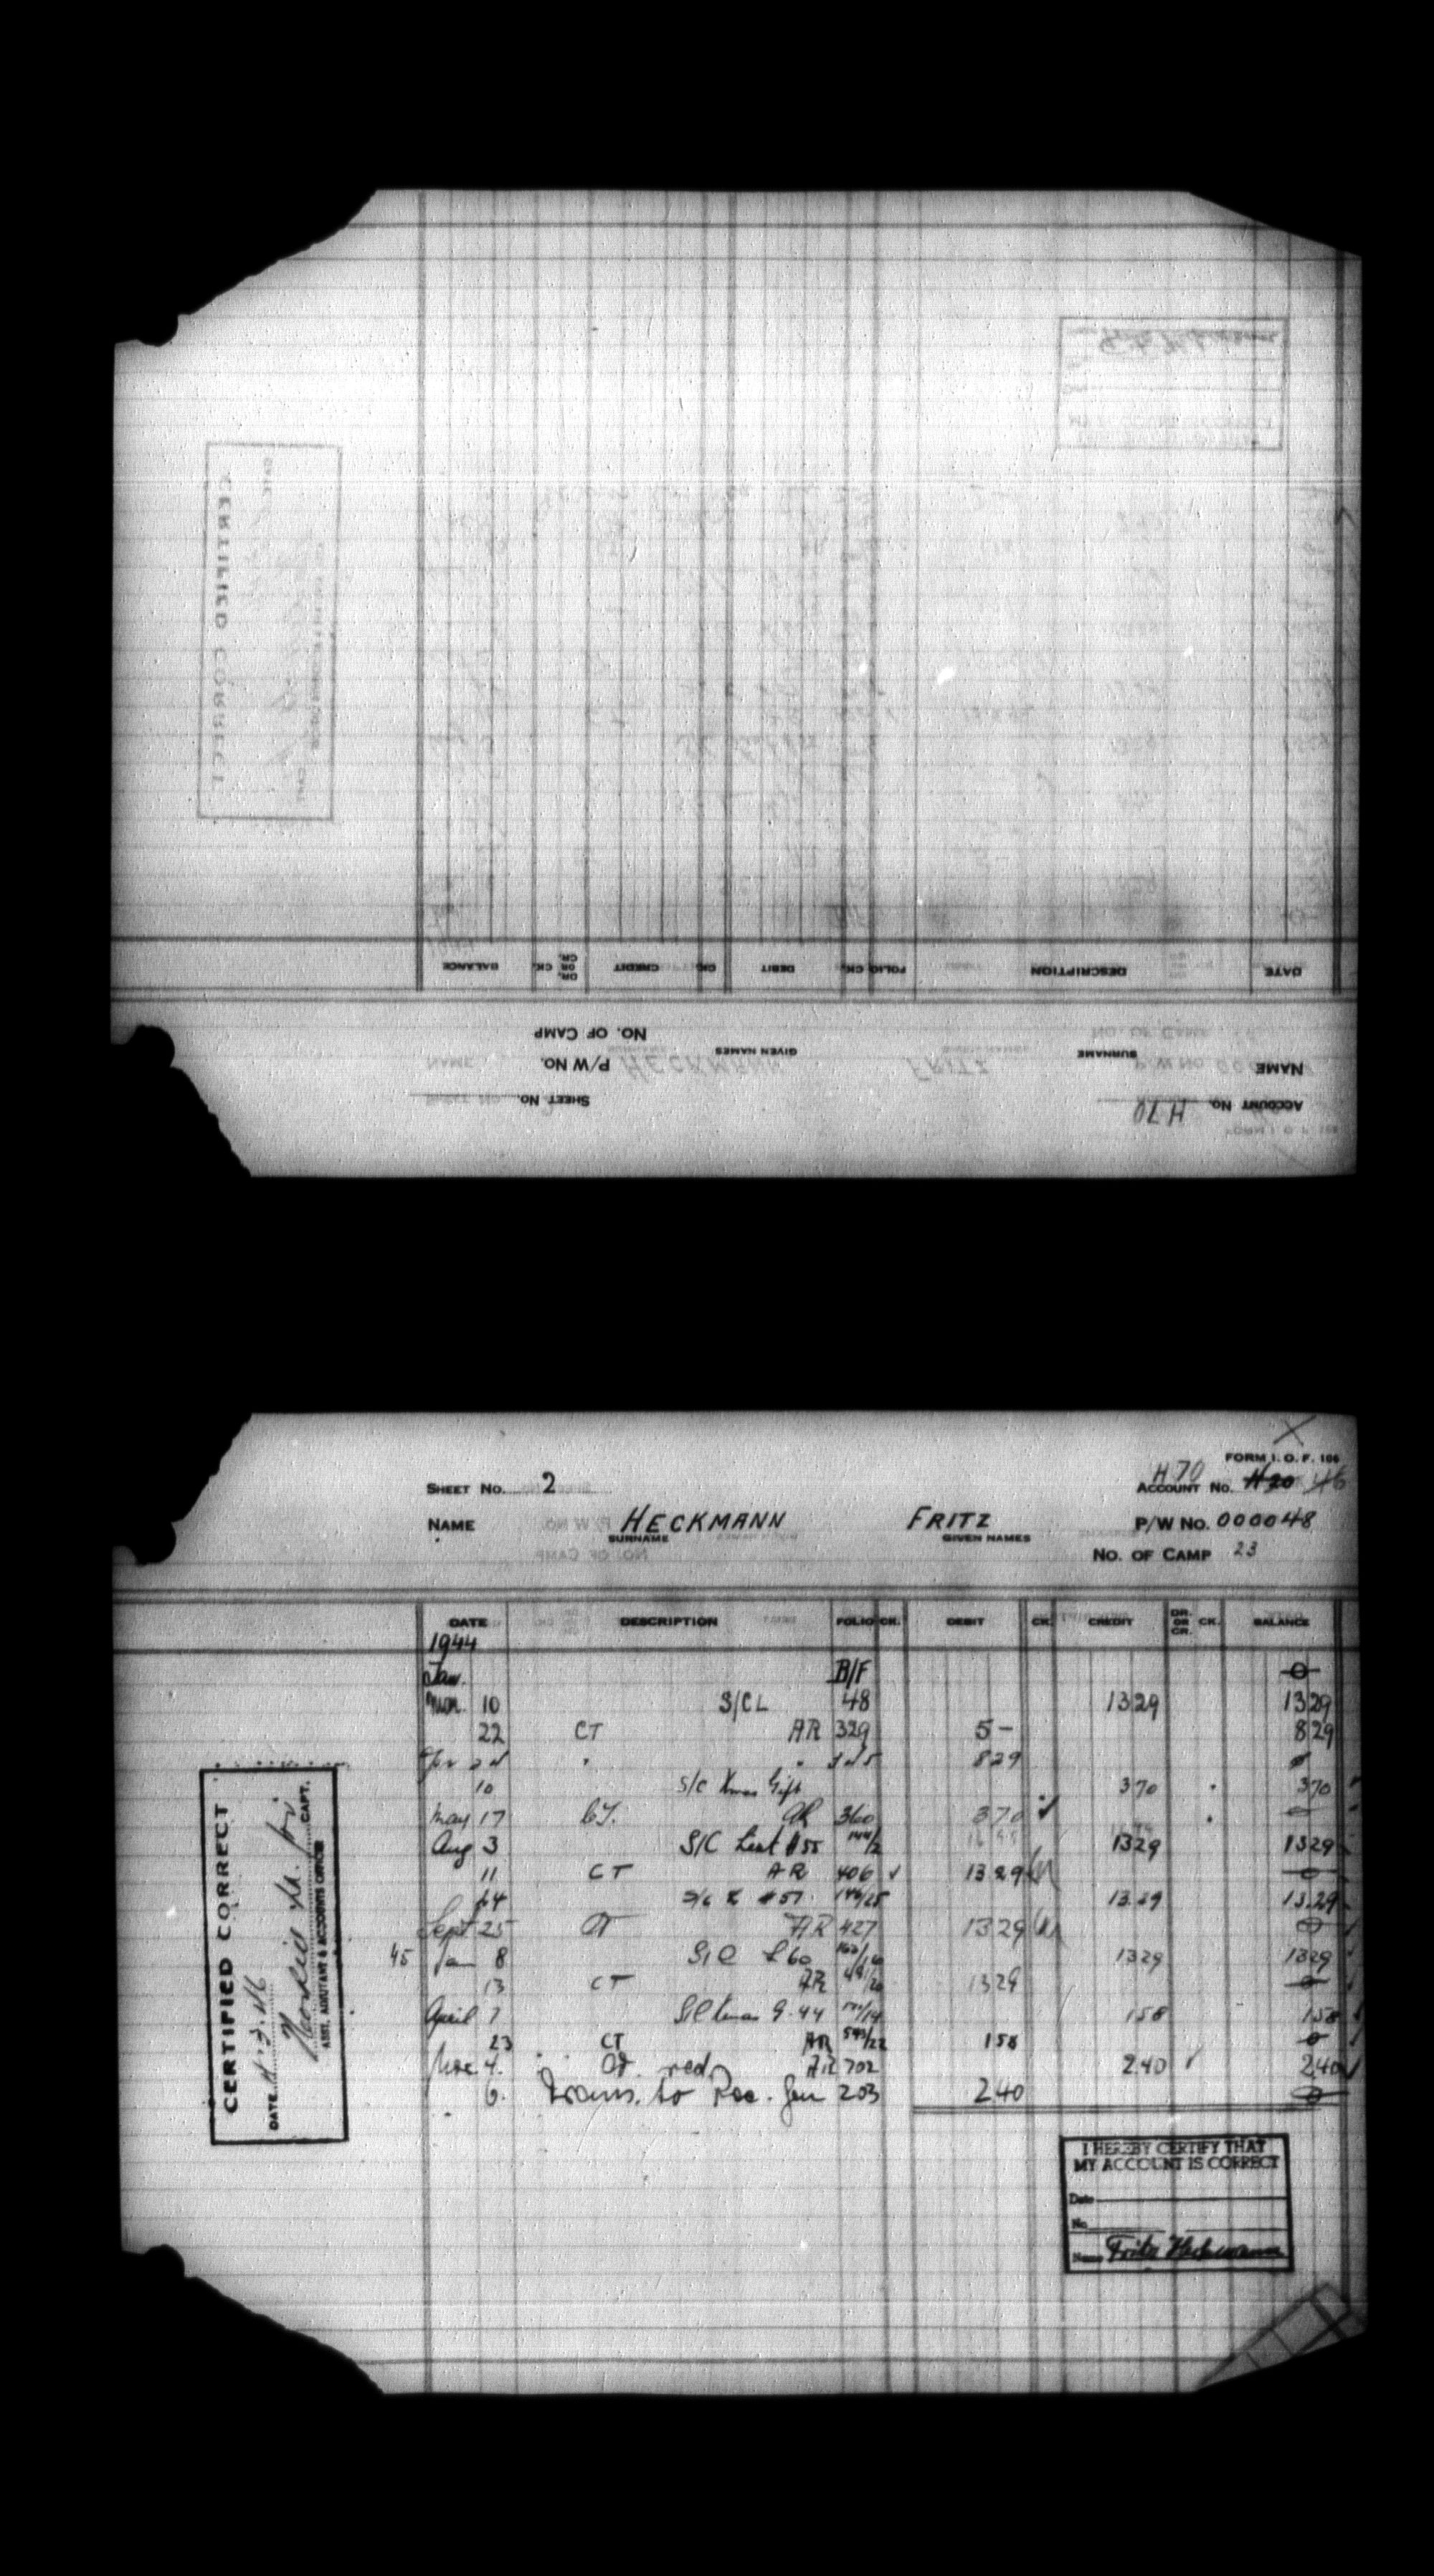 BALANCE CK. DR. OR CR. CREDIT CK. DEBIT CK. FOLIO DESCRIPTION DATE
NO. OF CAMP
P/W No. GIVEN NAMES SURNAME NAME
SHEET No. ACCOUNT No. H 70
FORM I. O. F. 106
SHEET No. 2 H 70 ACCOUNT No. H20 46
NAME HECKMANN FRITZ P/W No. 000048
SURNAME GIVEN NAMES
NO. OF CAMP 23
DATE DESCRIPTION FOLIO CK. DEBIT CK. CREDIT DR. OR CR. CK. BALANCE
1944
Jan. B/F 0
Mar. 10 S/CL 48 1329 1329
22 CT AR 329 5- 829
829 0
10 S/C Xmas Gift 370 370
May 17 CT. AR 360 370 0
Aug 3 S/C #55 144/2 1329 1329
11 CT AR 406 1329 0
14 S/C #57 1329 13.29
Sept 25 CT AR 427 1329 0
45 Jan 8 S/C L 60 1329 1329
13 CT AR 1329 0
April 7 S/C Xmas G. 44 158 158
23 CT AR 543/22 158 0
4. red. AR 702 2.40 2.40
6. Trans. to Rec. Gen 203 2.40 0
CERTIFIED CORRECT
DATE
CAPT.
ASST. ADJUTANT & ACCOUNTS OFFICER
I HEREBY CERTIFY THAT
MY ACCOUNT IS CORRECT
Date
No.
Name Fritz Heckmann